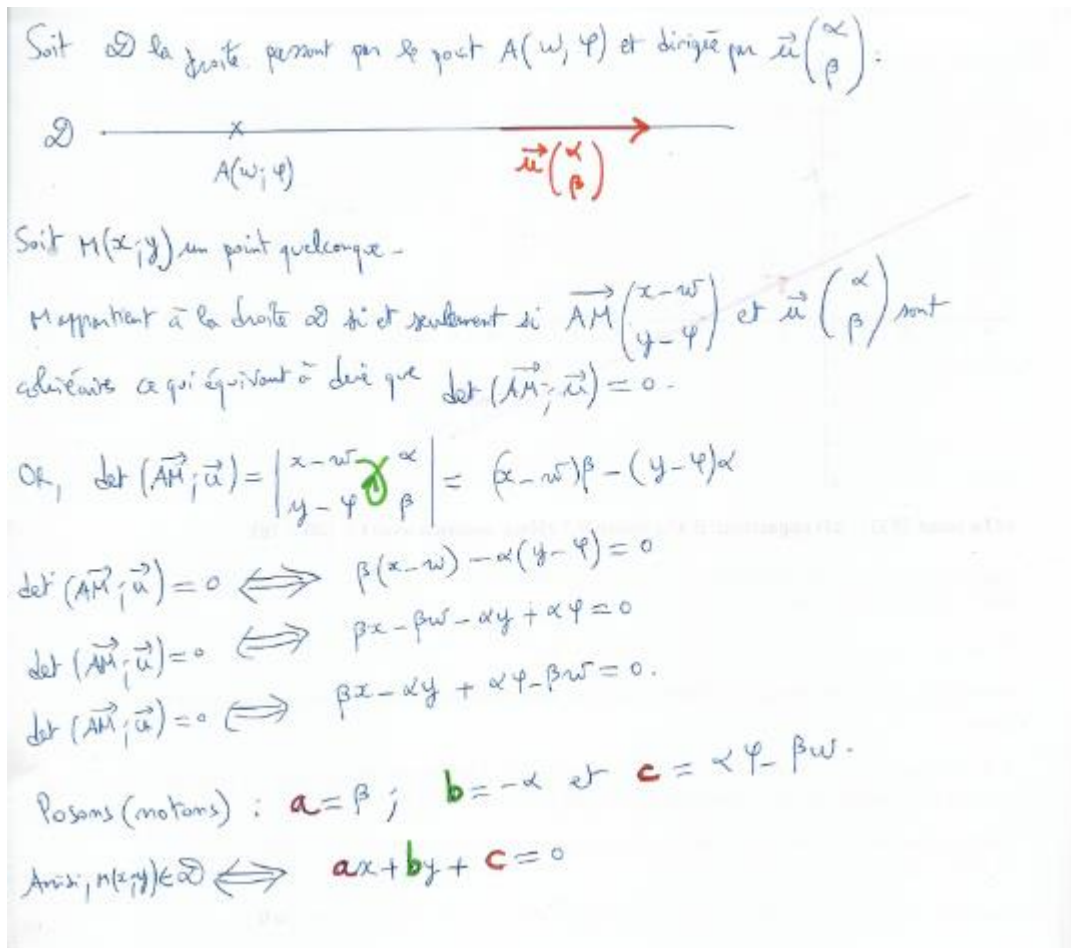 Soit 𝒟 la droite passant par le point A(w, φ) et dirigée par u⃗(α β) :
𝒟
A(w; φ)
u⃗(α β)
Soit M(x; y) un point quelconque -
M appartient à la droite 𝒟 si et seulement si AM⃗(x-w y-φ) et u⃗(α β) sont
colinéaires ce qui équivaut à dire que det(AM⃗; u⃗) = 0.
OR, det(AM⃗; u⃗) = |x-w α y-φ β| = (x-w)β - (y-φ)α
det(AM⃗; u⃗) = 0 ⟺ β(x-w) - α(y-φ) = 0
det(AM⃗; u⃗) = 0 ⟺ βx - βw - αy + αφ = 0
det(AM⃗; u⃗) = 0 ⟺ βx - αy + αφ - βw = 0.
Posons (notons) : a = β ; b = -α et c = αφ - βw.
Ainsi, M(x;y) ∈ 𝒟 ⟺ ax + by + c = 0